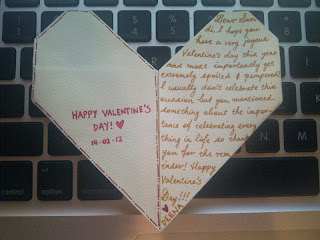 HAPPY VALENTINE'S
DAY! ♥
14-02-12
Dear
hi, I hope you
have a very joyous
Valentine's day this year
and most importantly get
extremely spoiled & pampered!
I usually don't celebrate this
occasion but you mentioned
something about the impor
tance of celebrating every
thing in life so thank
you for the rem
inder! Happy
Valentine's
Day!!!
♥
DEENA
control
option
command